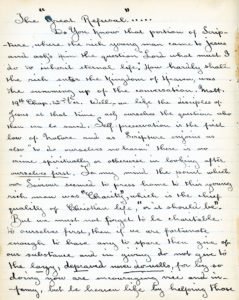 The "Great Refusal".....
Do you know that portion of Scrip-
ture, where the rich young man came to Jesus
and asks him the question "Lord what must I
do to inherit eternal life," How hardly shall
the rich enter the Kingdom of Heaven, was
the summing up of the conversation. Matt.
19th Chap. Well, as like the disciples of
Jesus at that time ask ourselves the question who
then can be saved. Self preservation is the first
law of Nature and as Scripture enjoins us
also "to do ourselves no harm" there is no
crime spiritually or otherwise in looking after
ourselves first. To my mind the point which
our Saviour seemed to press home to this young
rich man was "Charity", which is the chief
quality of Christian life, or it should be.
But we must not forget to be charitable
to ourselves first, then if we are fortunate
enough to have any to spare then give of
our substance and in giving do not give to
the lazy, depraved for by so
doing you are encouraging vice and in-
famy, but to heaven life by helping those